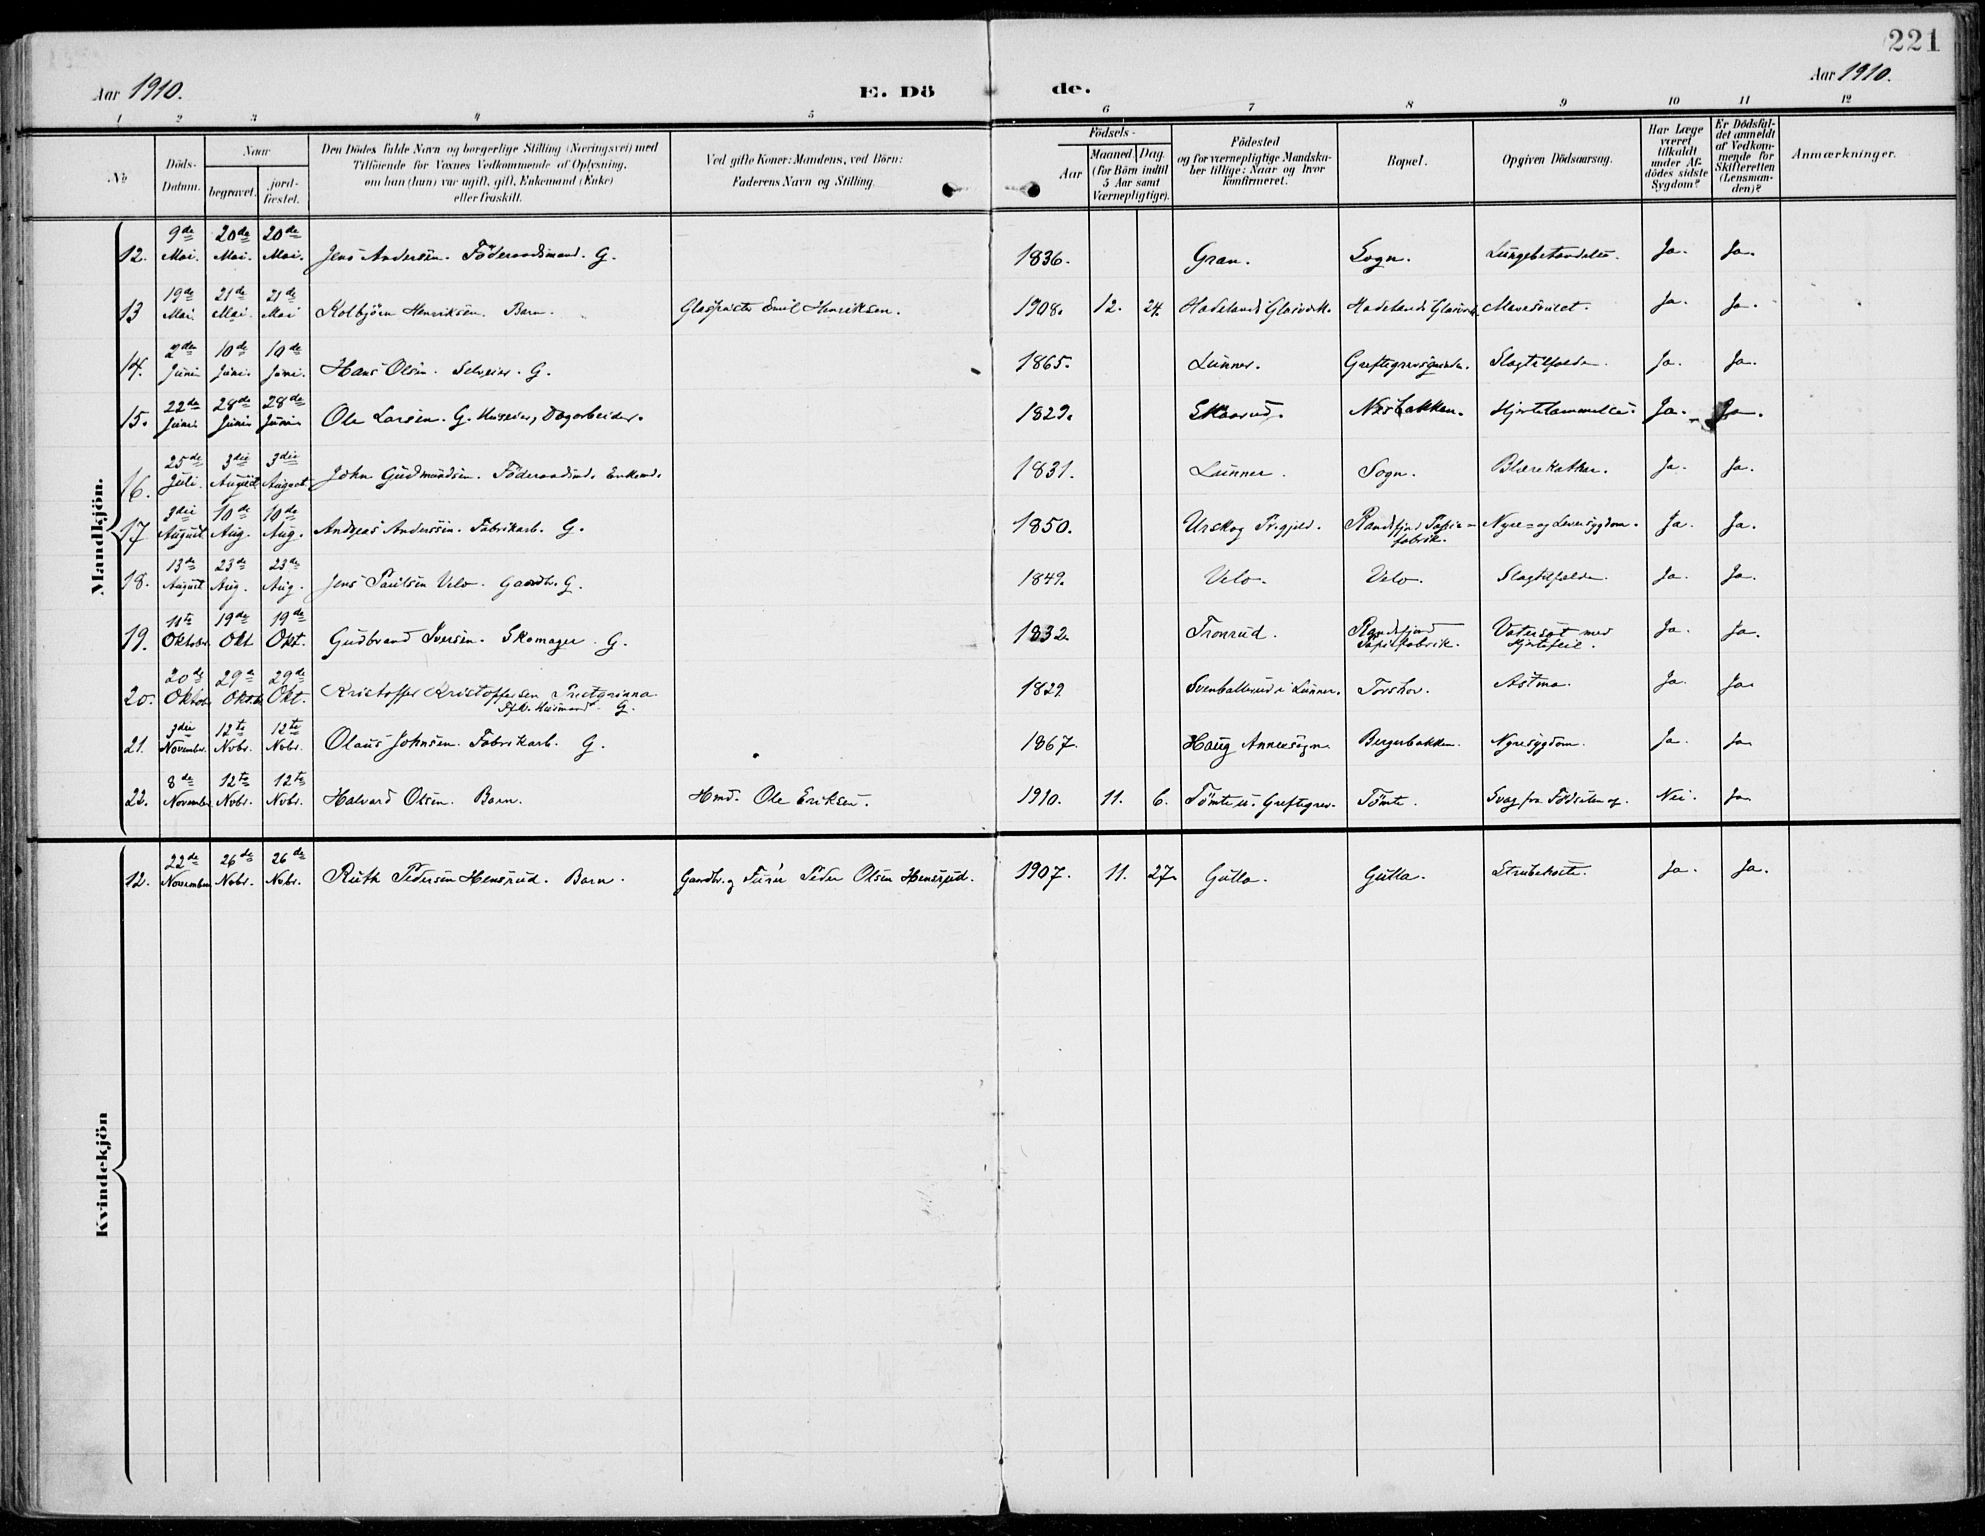 221
Aar 1910.
E. Dö de.
Aar 1910.
1 2 3 4 5 6 7 8 9 10 11 12
No
Döds-Datum.
Naar
begravet.
jord-fæstet.
Den Dödes fulde Navn og borgerlige Stilling (Næringsvei) med
Tilföiende for Voxnes Vedkommende af Oplysning,
om han (hun) var ugift, gift, Enkemand (Enke)
eller fraskilt.
Ved gifte Koner: Mandens, ved Börn:
Faderens Navn og Stilling.
Födsels-
Aar
Maaned.
Dag.
(for Börn indtil
5 Aar samt
Værnepligtige).
Födested
og for værnepligtige Mandska-
ber tillige: Naar og hvor
konfirmeret.
Bopæl.
Opgiven Dödsaarsag.
Har Læge
været
tilkaldt
under Af-
dödes sidste
Sygdom?
Er Dödsfal-
det anmeldt
af Vedkom-
mende for
Skifteretten
(Lensman-
den)?
Anmærkninger.
Mandkjön.
12. 9de Mai. 20de Mai. 20de Mai. Jens Andersen. Föderaadsmand. G. 1836. Gran. Sogn. Lungebetændelse. Ja. Ja.
13 19de Mai. 21de Mai. 21de Mai Kolbjörn Henriksen. Barn. Emil Henriksen. 1908. 12. 24. Hadelands Glasværk. Hadelands Glasværk. Ja. Ja.
14. 2den Juni 10de Juni. 10de Juni. Hans Olsen. Selveier. G. 1865. Lunner. Slagtilfælde. Ja. Ja.
15. 22de Juni. 28de Juni 28de Juni. Ole Larsen. G. Huseier, Dagarbeider. 1829. Skaarud. Næsbakken. Hjertelammelse. Ja. Ja.
16. 25de Juli. 3die August 3die August. John Gudmundsen. Föderaadsmd. Enkemd. 1831. Lunner. Sogn. Blærekathar. Ja. Ja.
17 3die August 10de Aug. 10de Aug. Andreas Anderssen. Fabrikarb. G. 1850. Urskog Præstegjeld. Randsfjord Papir-
fabrik. Nyre- og Leversygdom. Ja. Ja.
18. 13de August 23de Aug. 23de Aug. Jens Paulsen Velo. Gaardbr. G. 1849. Velo. Velo. Slagtilfælde. Ja. Ja.
19. 11te Oktober 19de Okt 19de Okt. Gudbrand Iversen. Skomager. G. 1832. Tronrud. Randsfjord
Papirfabrik. Vatersot med
Hjertefeil. Ja. Ja.
20. 20de Oktob. 29de Oktb. 29de Okt. Kristoffer Kristoffersen
Husmand. G. 1829 Svenballerud i Lunner. Torshov. Astma. Ja. Ja.
21. 3die Novembr. 12te Nobr. 12te Nobr. Olaus Johnsen. Fabrikarb. G. 1867. Haug Annexsogn. Bergerbakken. Nyresygdom. Ja. Ja
22. 8de November 12te Nobr. 12te Nobr. Halvard Olsen. Barn. Hmd. Ole Eriksen. 1910. 11. 6. Tömte u. Greftegrev. Tömte. Svag fra Födselen af. Nei. Ja
Kvindekjön
12. 22de November 26de Nobr. 26de Nobr. Ruth Pedersen Hensrud. Barn. Gaardbr. og Peder Olsen Hensrud. 1907. 11. 27. Gulla. Gulla. Strubehoste. Ja. Ja.